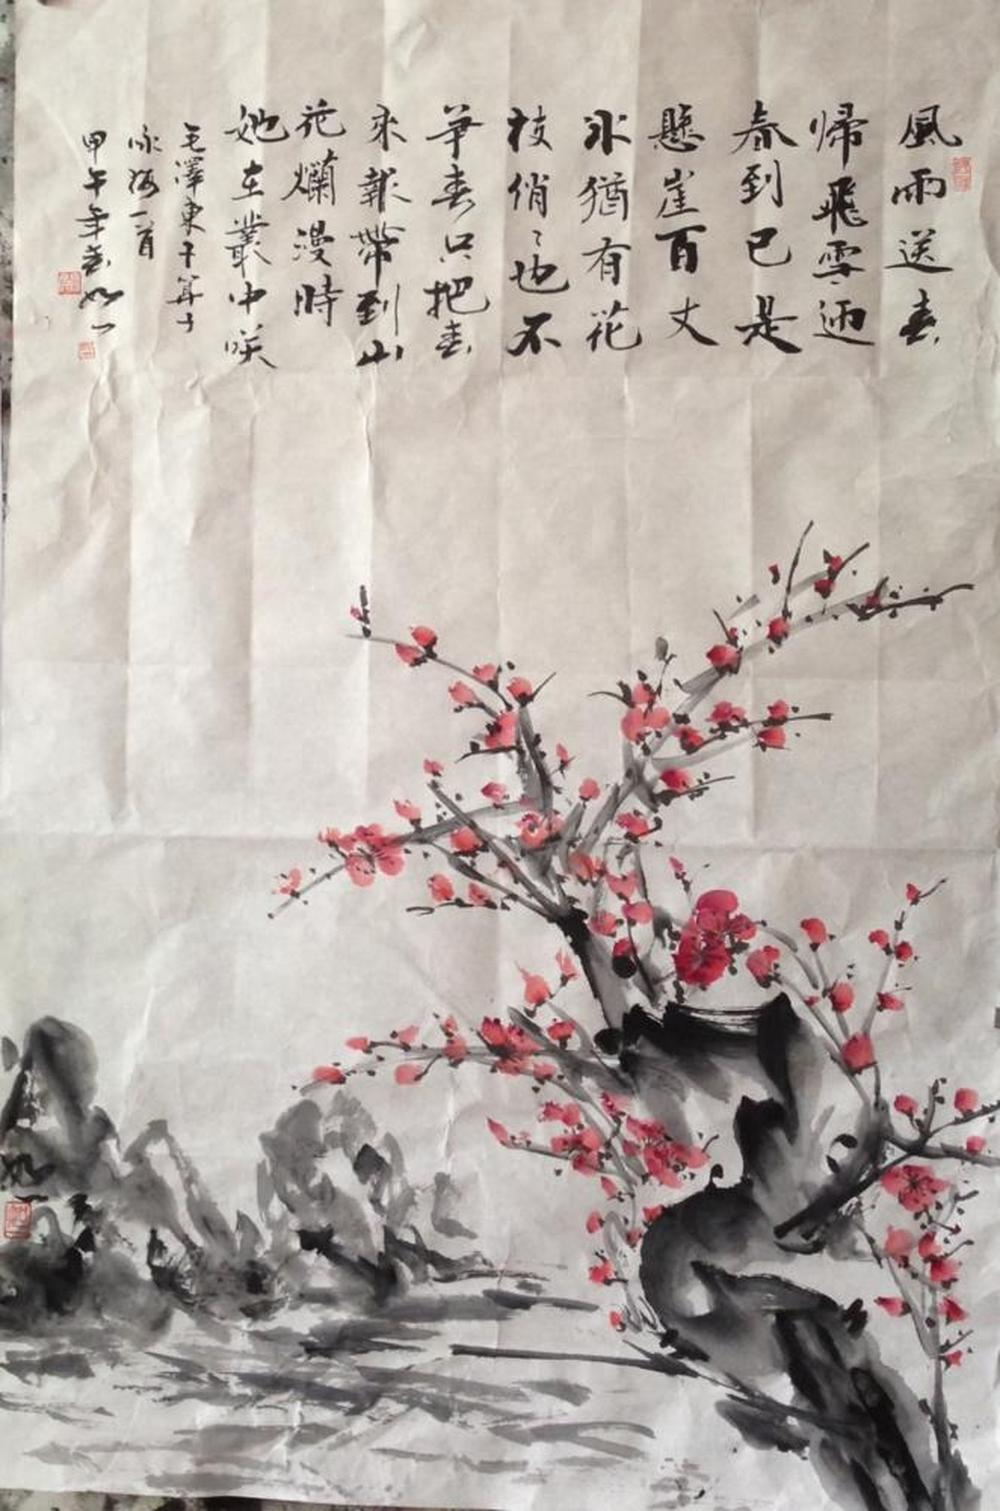 風雨送春
歸飛雪迎
春到已是
懸崖百丈
冰猶有花
枝俏〻也不
争春只把春
來報帶到山
花爛漫時
她在叢中咲
毛澤東卜算子
咏梅一首
甲午年春如一